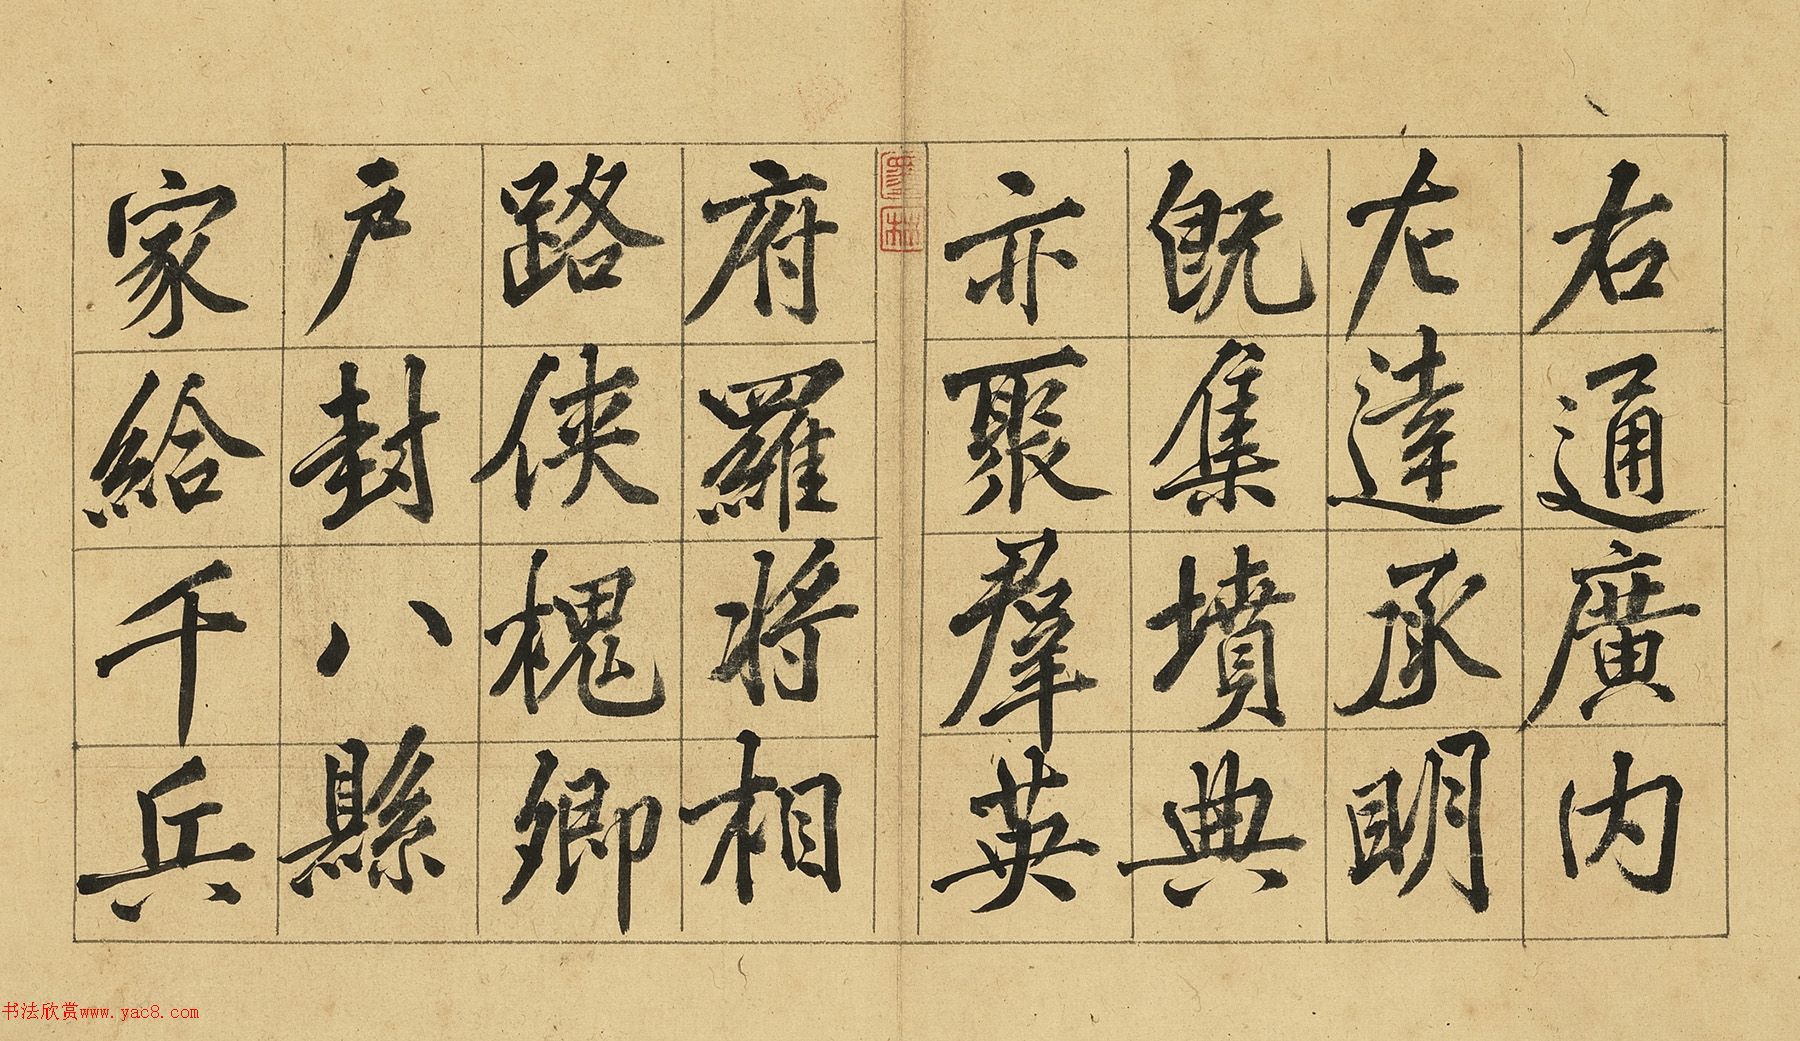 右通廣內
左達承明
既集墳典
亦聚羣英
府羅將相
路俠槐卿
戶封八縣
家給千兵
书法欣赏www.yac8.com